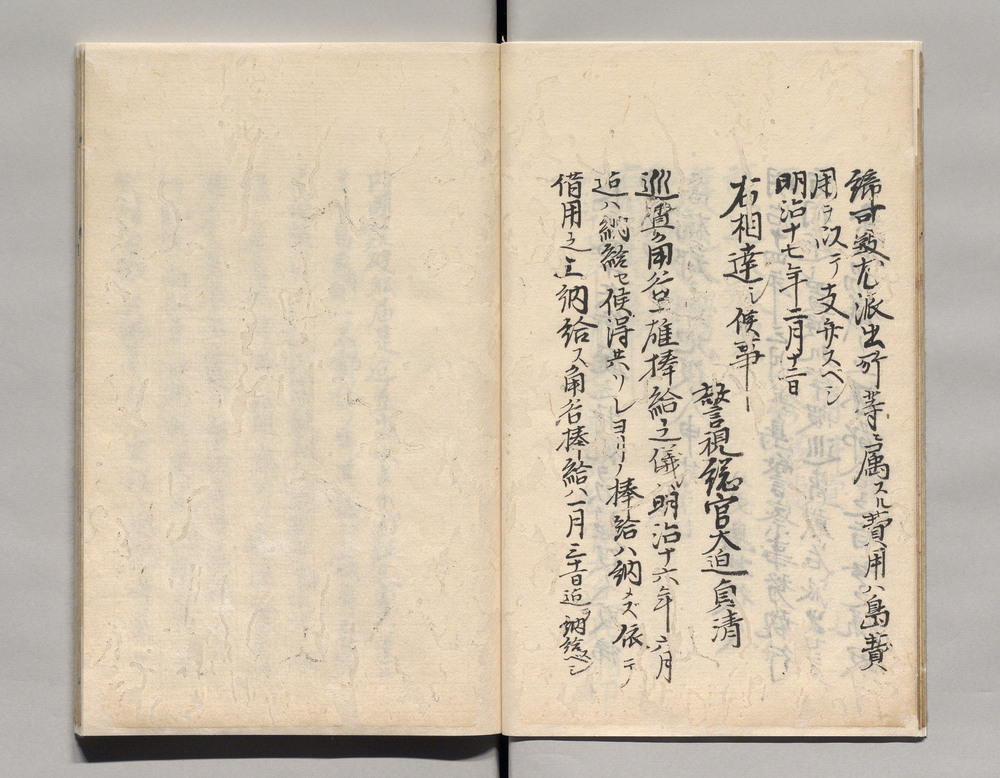 締可致尤派出所等ニ属スル費用ハ島費
用ヲ以テ支弁スベシ
明治十七年二月十二日
右相達シ候事
警視総官大迫貞清
巡費用 雄捧給之儀ハ明治十六年六月
迄ハ納給セ候得共 捧給ハ納メズ依テ
借用之上納給ス 捧給ハ一月三十日迄ヲ納給スベシ